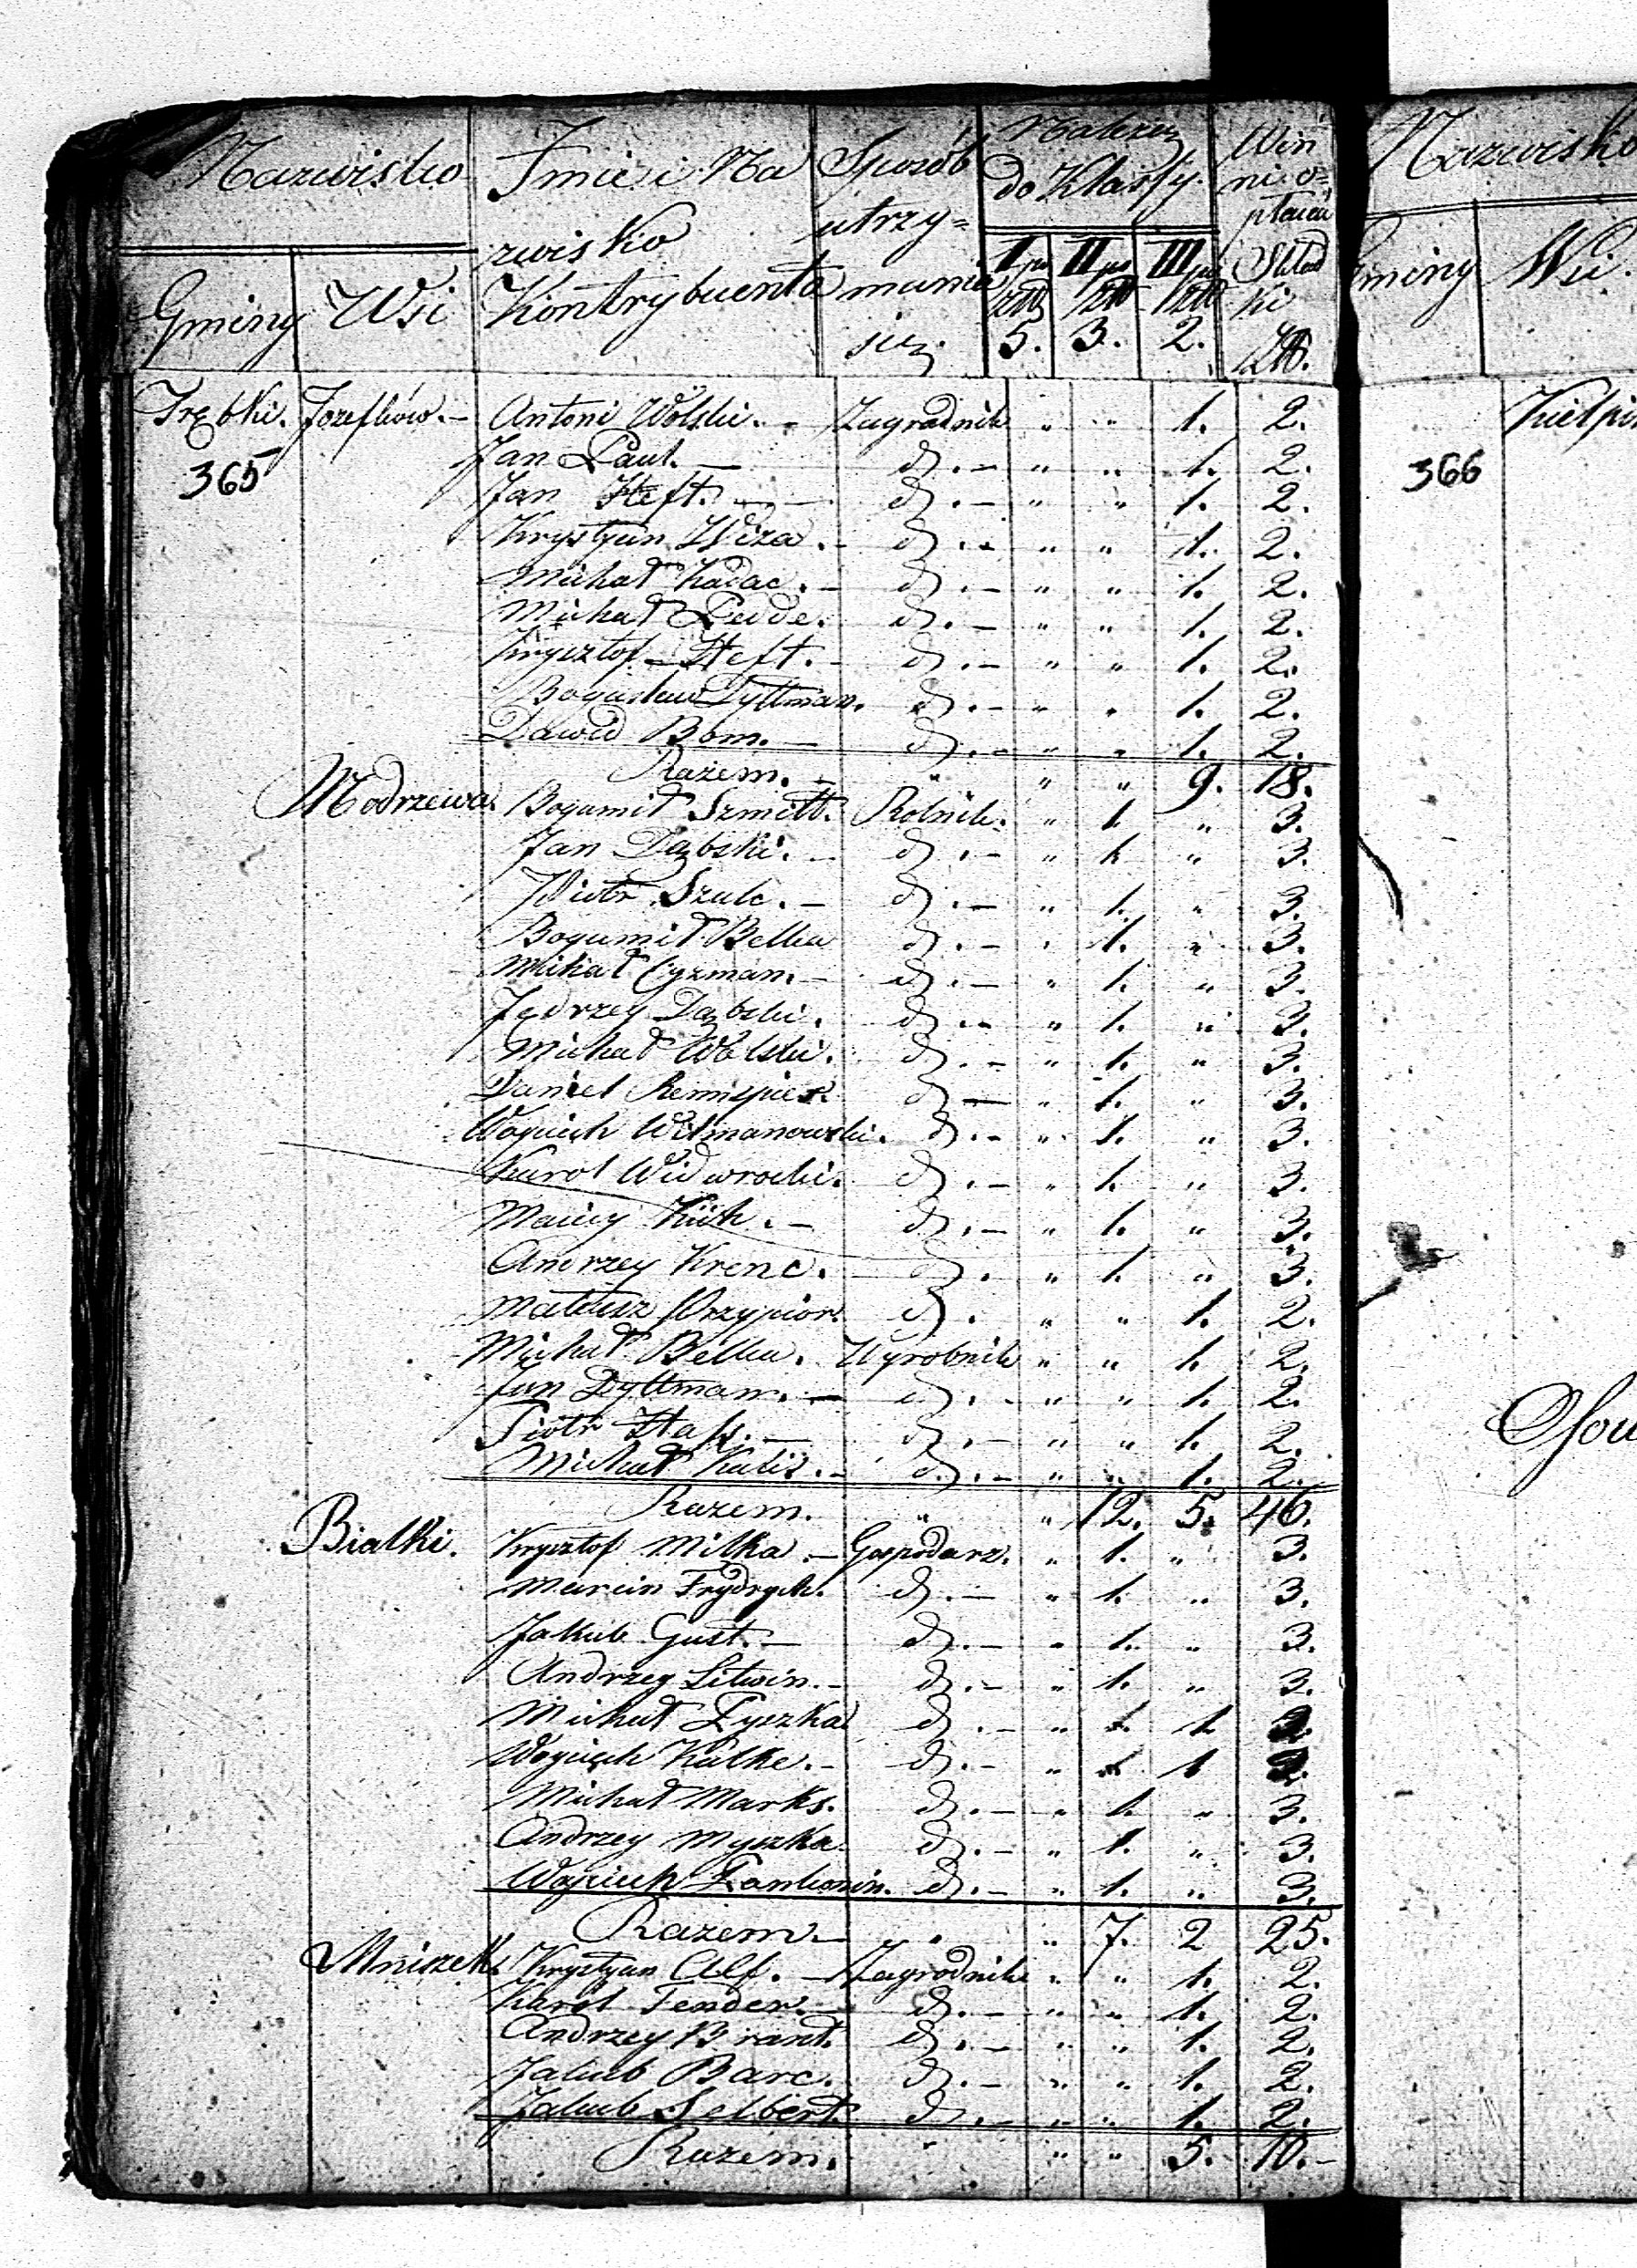 Nazwisko Imie i Na Sposób Należy Win
zwisko utrzy= do Klassy. ni o=
płacać
Gminy Wsi Kontrybuenta mania I po II po III po Skład
się. złł złł złł ki
5. 3. 2. złł.
Trębki. Jozefków. – Antoni Wolski. – Zagrodnik " " 1. 2.
365 Jan Paul. – d. – " " 1. 2.
Jan Heft. – d. – " " 1. 2.
Krystyan Wiza. – d. – " " 1. 2.
Michał Kadac. – d. – " " 1. 2.
Michał Pedde. d. – " " 1. 2.
Krysztof Heft. – d. – " " 1. 2.
Bogusław Dyttman. d. – " " 1. 2.
Dawid Bom. – d. – " " 1. 2.
Razem. – " " " 9. 18.
Modrzewa. Bogumił Szmitt. Rolnik. " 1. " 3.
Jan Dąbski. – d. – " 1. " 3.
Piotr Szulc. – d. – " 1. " 3.
Bogumił Belka d. – " 1. " 3.
Michał Cyzman. – d. – " 1. " 3.
Jędrzey Dąbski. d. – " 1. " 3.
Michał Wolski. d. – " 1. " 3.
Daniel d. – " 1. " 3.
Woyciech Witmanowski. d. – " 1. " 3.
Karol Widwrocki. d. – " 1. " 3.
Maciey – d. – " 1. " 3.
Andrzey Krenc. d. " 1. " 3.
Mateusz Przypior. d. " " 1. 2.
Michał Belka. Wyrobnik " " 1. 2.
Jan Dyttman. – d. – " " 1. 2.
Piotr Hass. – d. – " " 1. 2.
Michał Kalis. – d. – " " 1. 2.
Razem. " " 12. 5. 46.
Białki. Krysztof Milka. – Gospodarz. " 1. " 3.
Marcin Frydrych. d. – " 1. " 3.
Jakub Gust. – d. – " 1. " 3.
Andrzey Litwin. – d. – " 1. " 3.
Michał Łyszka. d. – " 1. 2.
Woyciech Kalke. – d. – " 1 2.
Michał Marks. d. – " 1. " 3.
Andrzey Myszka. d. – " 1. " 3.
Woyciech d. – " 1. " 3.
Razem. – " " 7. 2 25.
Mniszek. Krystyan Alf. – Zagrodnik " " 1. 2.
Karol Fender. – d. – " " 1. 2.
Andrzey Brant. d. – " " 1. 2.
Jakub Barc. d. – " " 1. 2.
Jakub Selbert. d. – " " 1. 2.
Razem. " " " 5. 10. –
Nazwisko
Gminy Wsi.
366